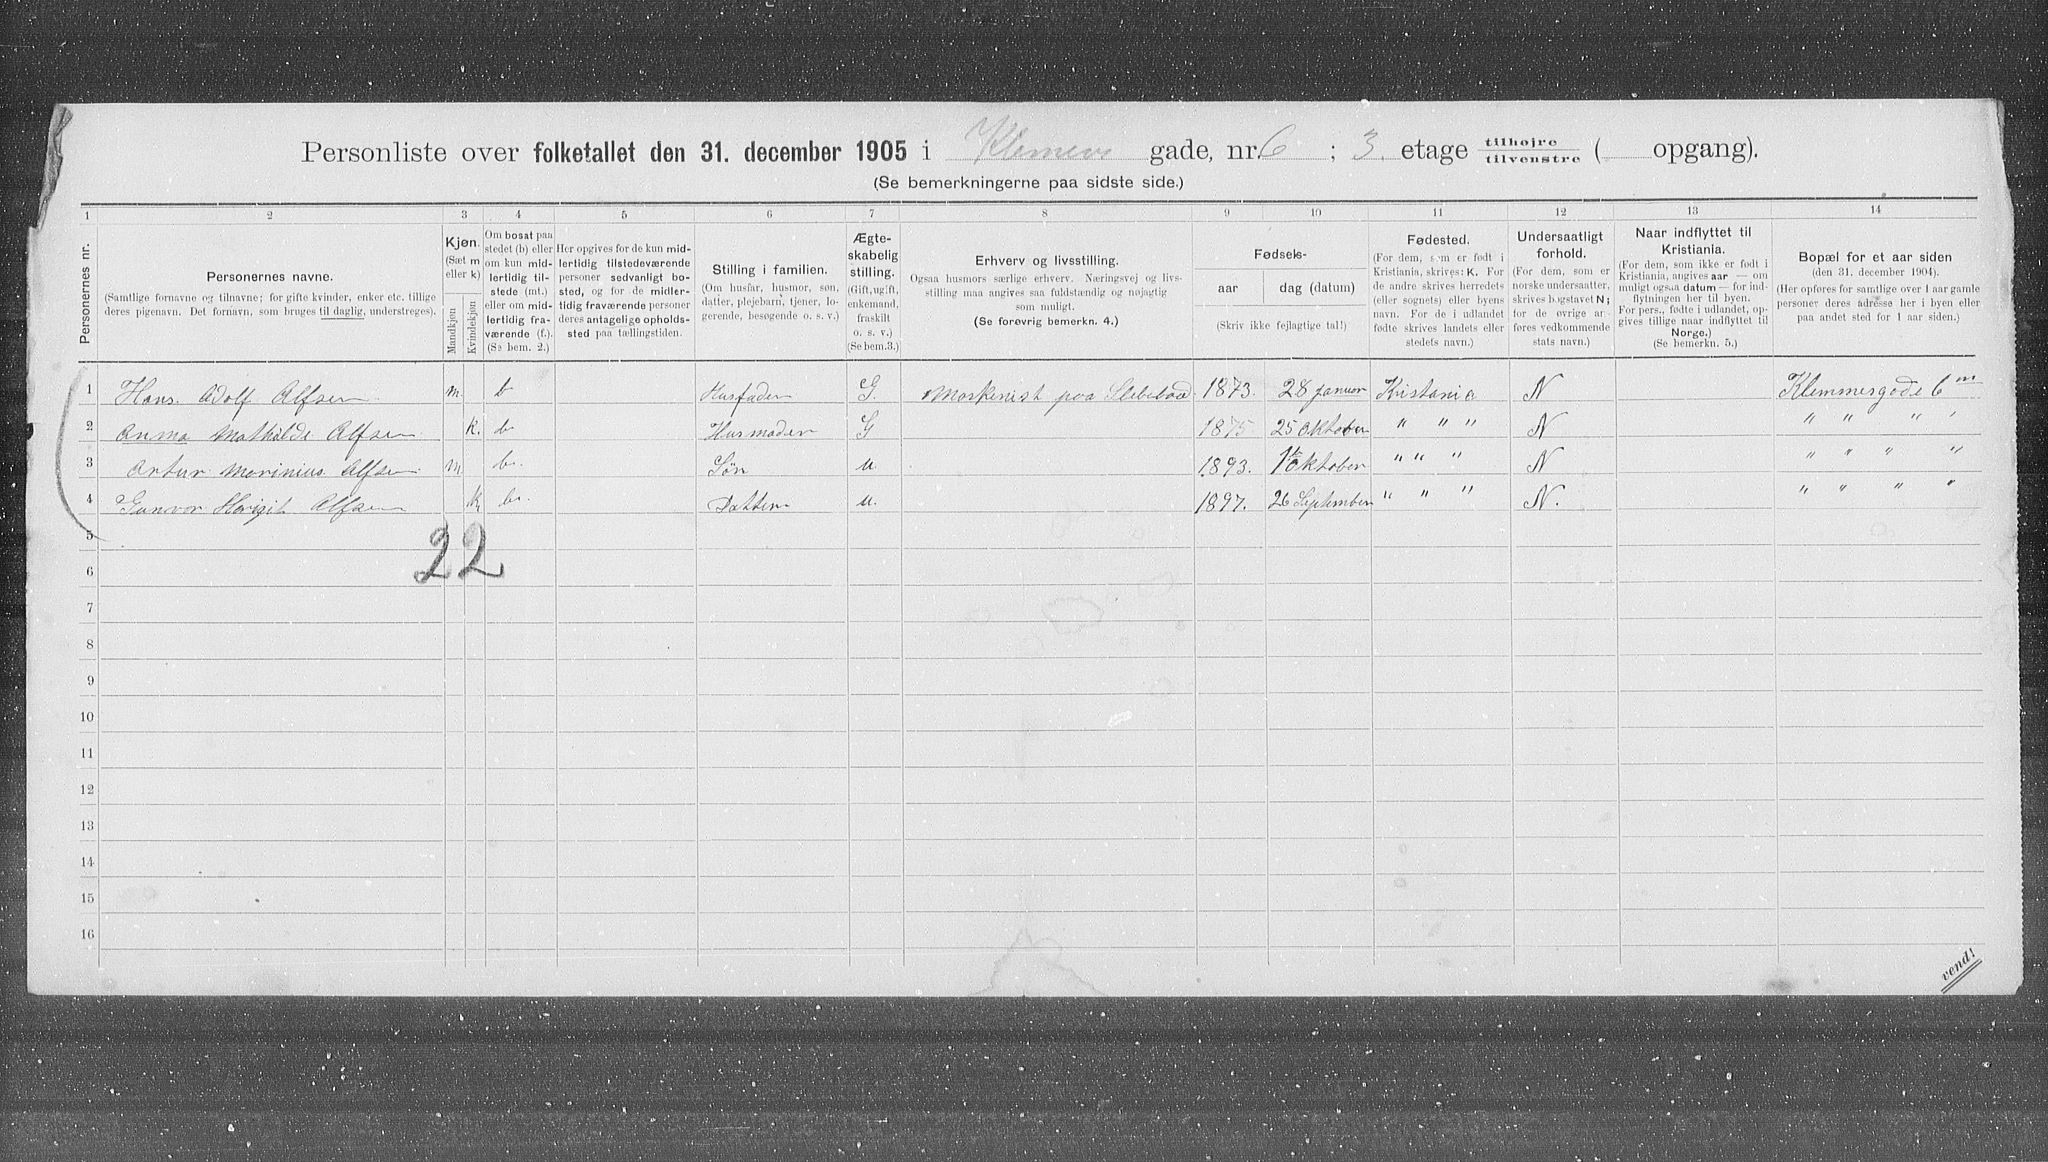 Personliste over folketallet den 31. december 1905 i Klemens gade, nr. 6 ; 3. etage tilhøjre tilvenstre ( opgang).
(Se bemerkningerne paa sidste side.)
1 2 3 4 5 6 7 8 9 10 11 12 13 14
Personernes nr.
Personernes navne.
(Samtlige fornavne og tilnavne; for gifte kvinder, enker etc. tillige
deres pigenavn. Det fornavn, som bruges til daglig, understreges).
Kjøn.
(Sæt m
eller k)
Mandkjøn
Kvindekjøn
Om bosat paa
stedet (b) eller
om kun mid-
lertidig til-
stede (mt.)
eller om mid-
lertidig fra-
værende (f.).
(Se bem. 2.)
Her opgives for de kun mid-
lertidig tilstedeværende
personer sedvanligt bo-
sted, og for de midler-
tidig fraværende personer
deres antagelige opholds-
sted paa tællingstiden.
Stilling i familien.
(Om husfar, husmor, søn,
datter, plejebarn, tjener, lo-
gerende, besøgende o. s. v.)
Ægte-
skabelig
stilling.
(Gift, ugift,
enkemand,
fraskilt
o. s. v.)
(Se bem. 3.)
Erhverv og livsstilling.
Ogsaa husmors særlige erhverv. Næringsvej og livs-
stilling maa angives saa fuldstændig og nøjagtig
som muligt.
(Se forøvrig bemerkn. 4.)
Fødsels-
aar
dag (datum)
(Skriv ikke fejlagtige tal!)
Fødested.
(For dem, som er født i
Kristiania, skrives: K. For
de andre skrives herredets
(eller sognets) eller byens
navn. For de i udlandet
fødte skrives landets eller
stedets navn.)
Undersaatligt
forhold.
(For dem, som er
norske undersaatter,
skrives bogstavet N;
for de øvrige an-
føres vedkommende
stats navn.)
Naar indflyttet til
Kristiania.
(For dem, som ikke er født i
Kristiania, angives aar — om
muligt ogsaa datum — for ind-
flytningen her til byen.
For pers., fødte i udlandet, op-
gives tillige naar indflyttet til
Norge.)
(Se bemerkn. 5.)
Bopæl for et aar siden
(den 31. december 1904).
(Her opføres for samtlige over 1 aar gamle
personer deres adresse her i byen eller
paa andet sted for 1 aar siden.)
1 Hans Adolf Alfsen m. b Husfader G. Maskenist paa 1873. 28 januar Kristania N Klemmesgade 6
2 Anna Mathilde Alfsen k. b Husmoder G 1875 25 Oktober " " " N " " " "
3 Artur Marinius Alfsen m b. Søn u. 1893. 1 Oktober " " " N " " " "
4 Gunvor Alfsen k b. Datter u. 1897. 26 September " " " N. " " " "
5
22
6
7
8
9
10
11
12
13
14
15
16
vend!